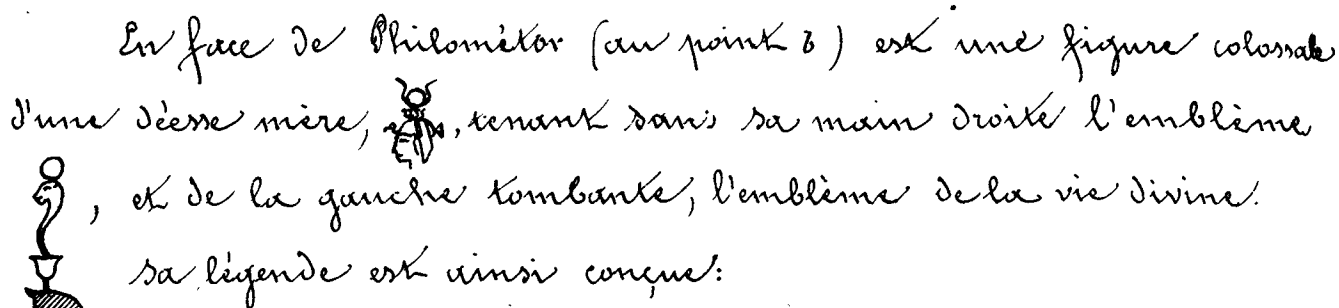 En face de Philométor (au point b) est une figure colossale
d'une déesse mère, , tenant dans sa main droite l'emblème
, et de la gauche tombante, l'emblème de la vie divine.
sa légende est ainsi conçue: